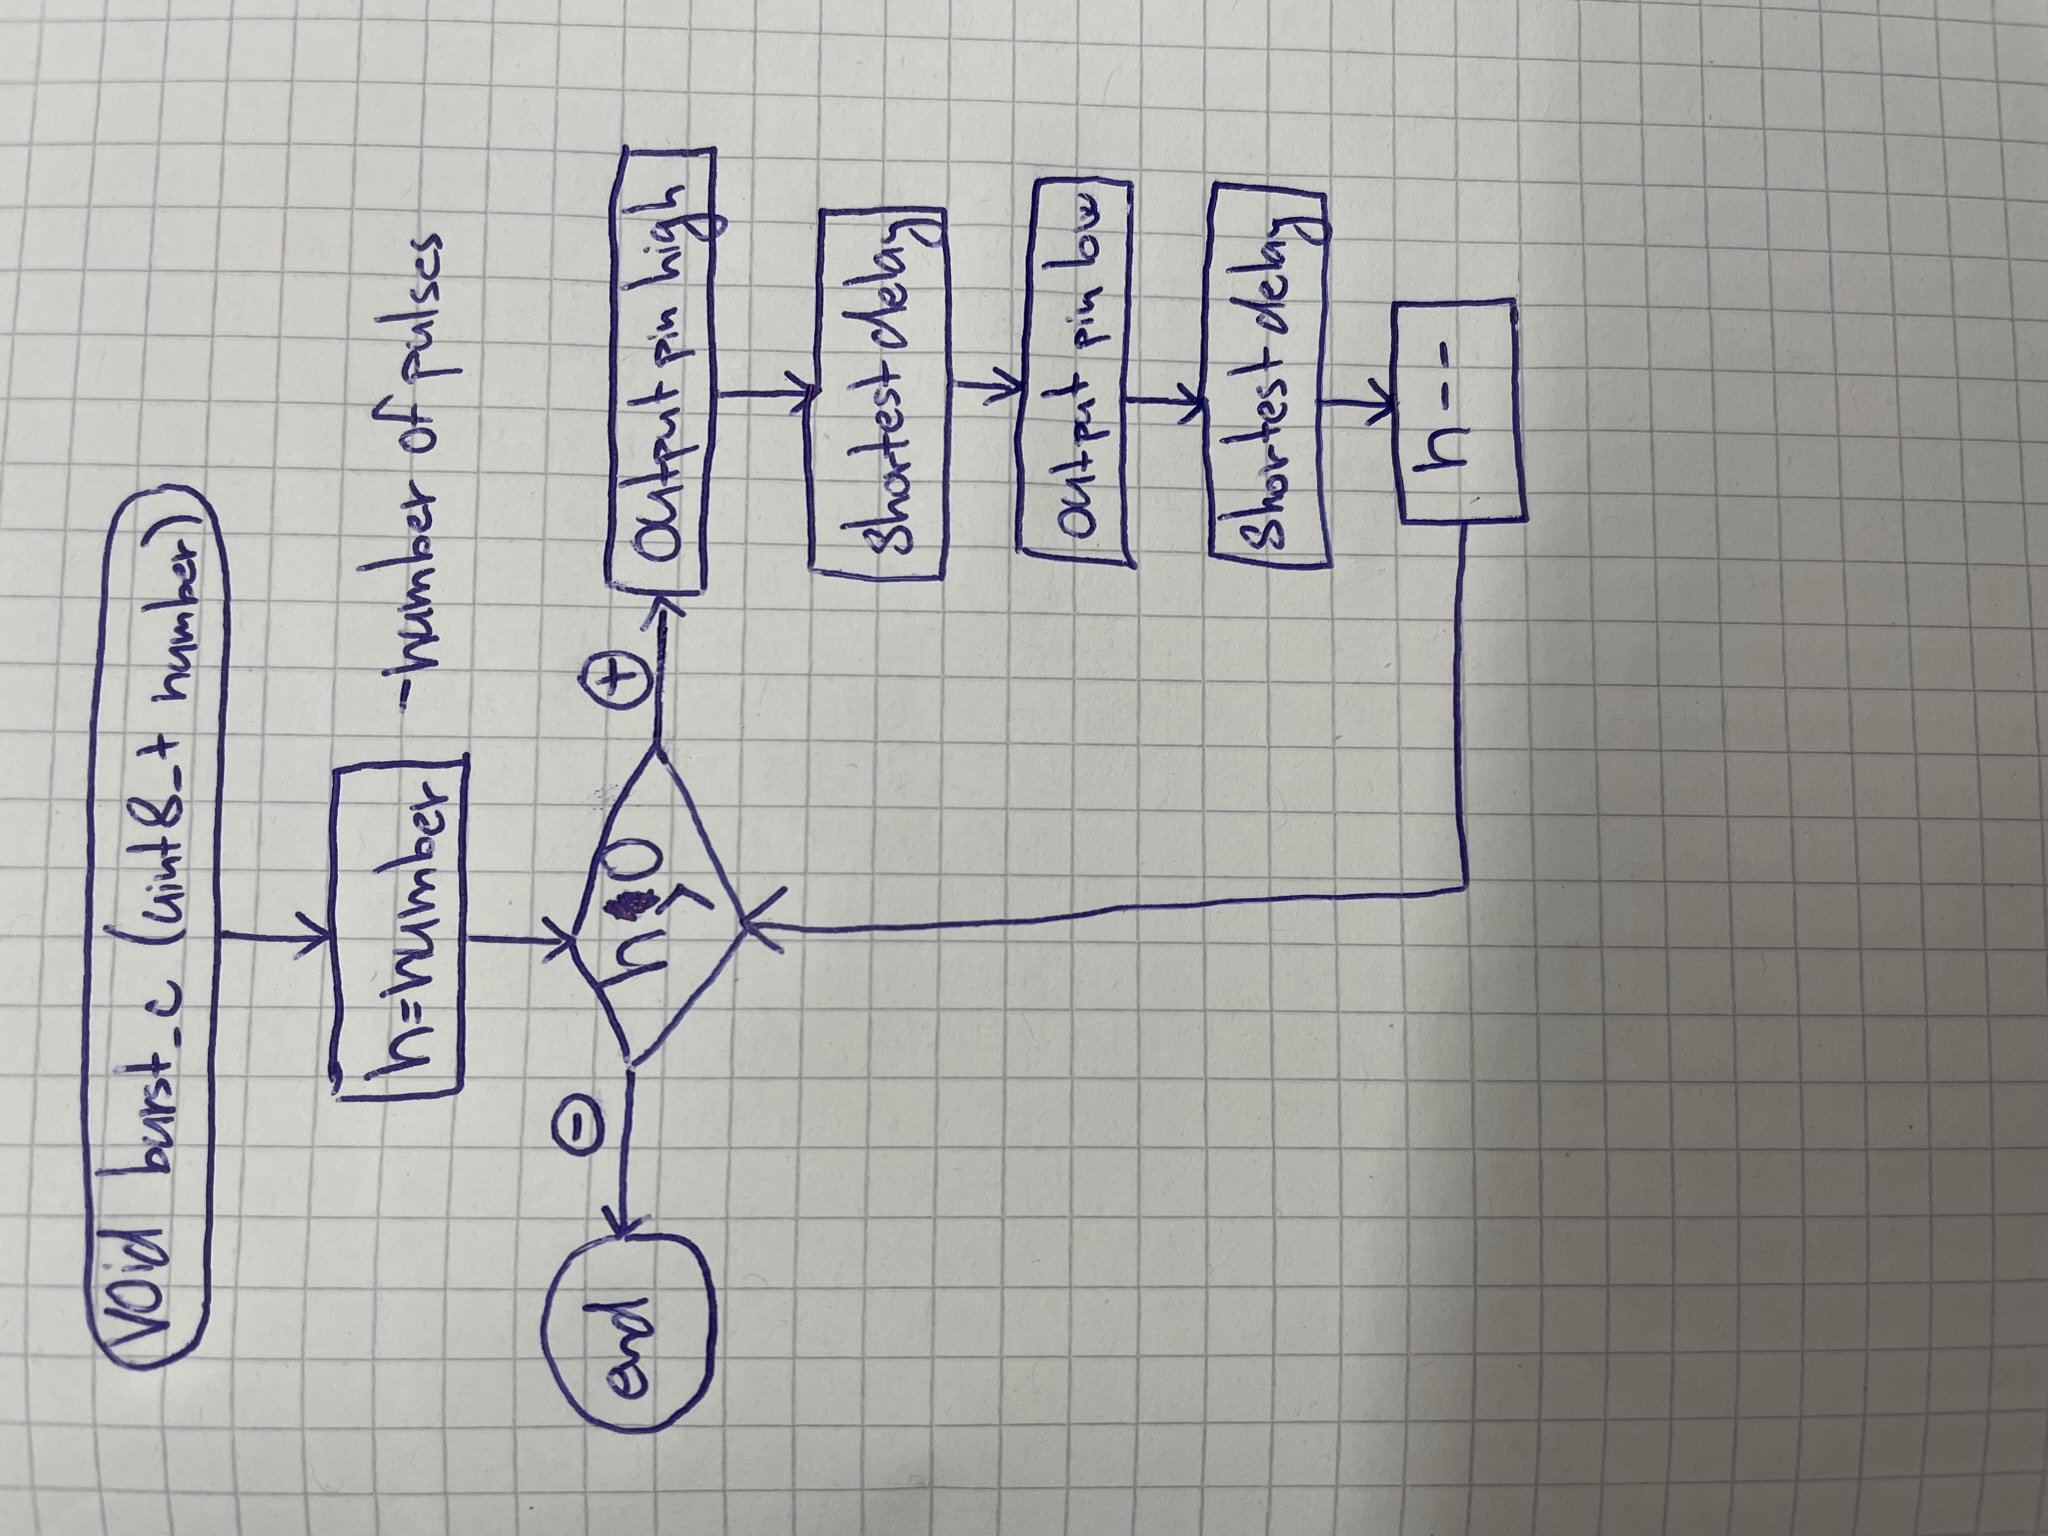 void burst_c (uint8_t number)
n=number
-number of pulses
end
-
n > 0
+
output pin high
shortest delay
output pin low
shortest delay
n--